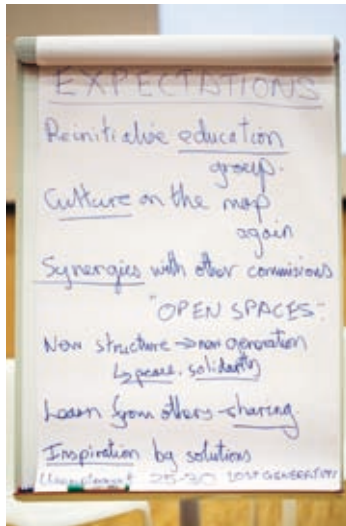 EXPECTATIONS
Reinitialive education
group.
Culture on the map
again
Synergies with other commisions
"OPEN SPACES".
New structure → new generation
↳ peace. solidarity
Learn from others → sharing.
Inspiration by solutions
Unemployment 25-30 LOST GENERATION